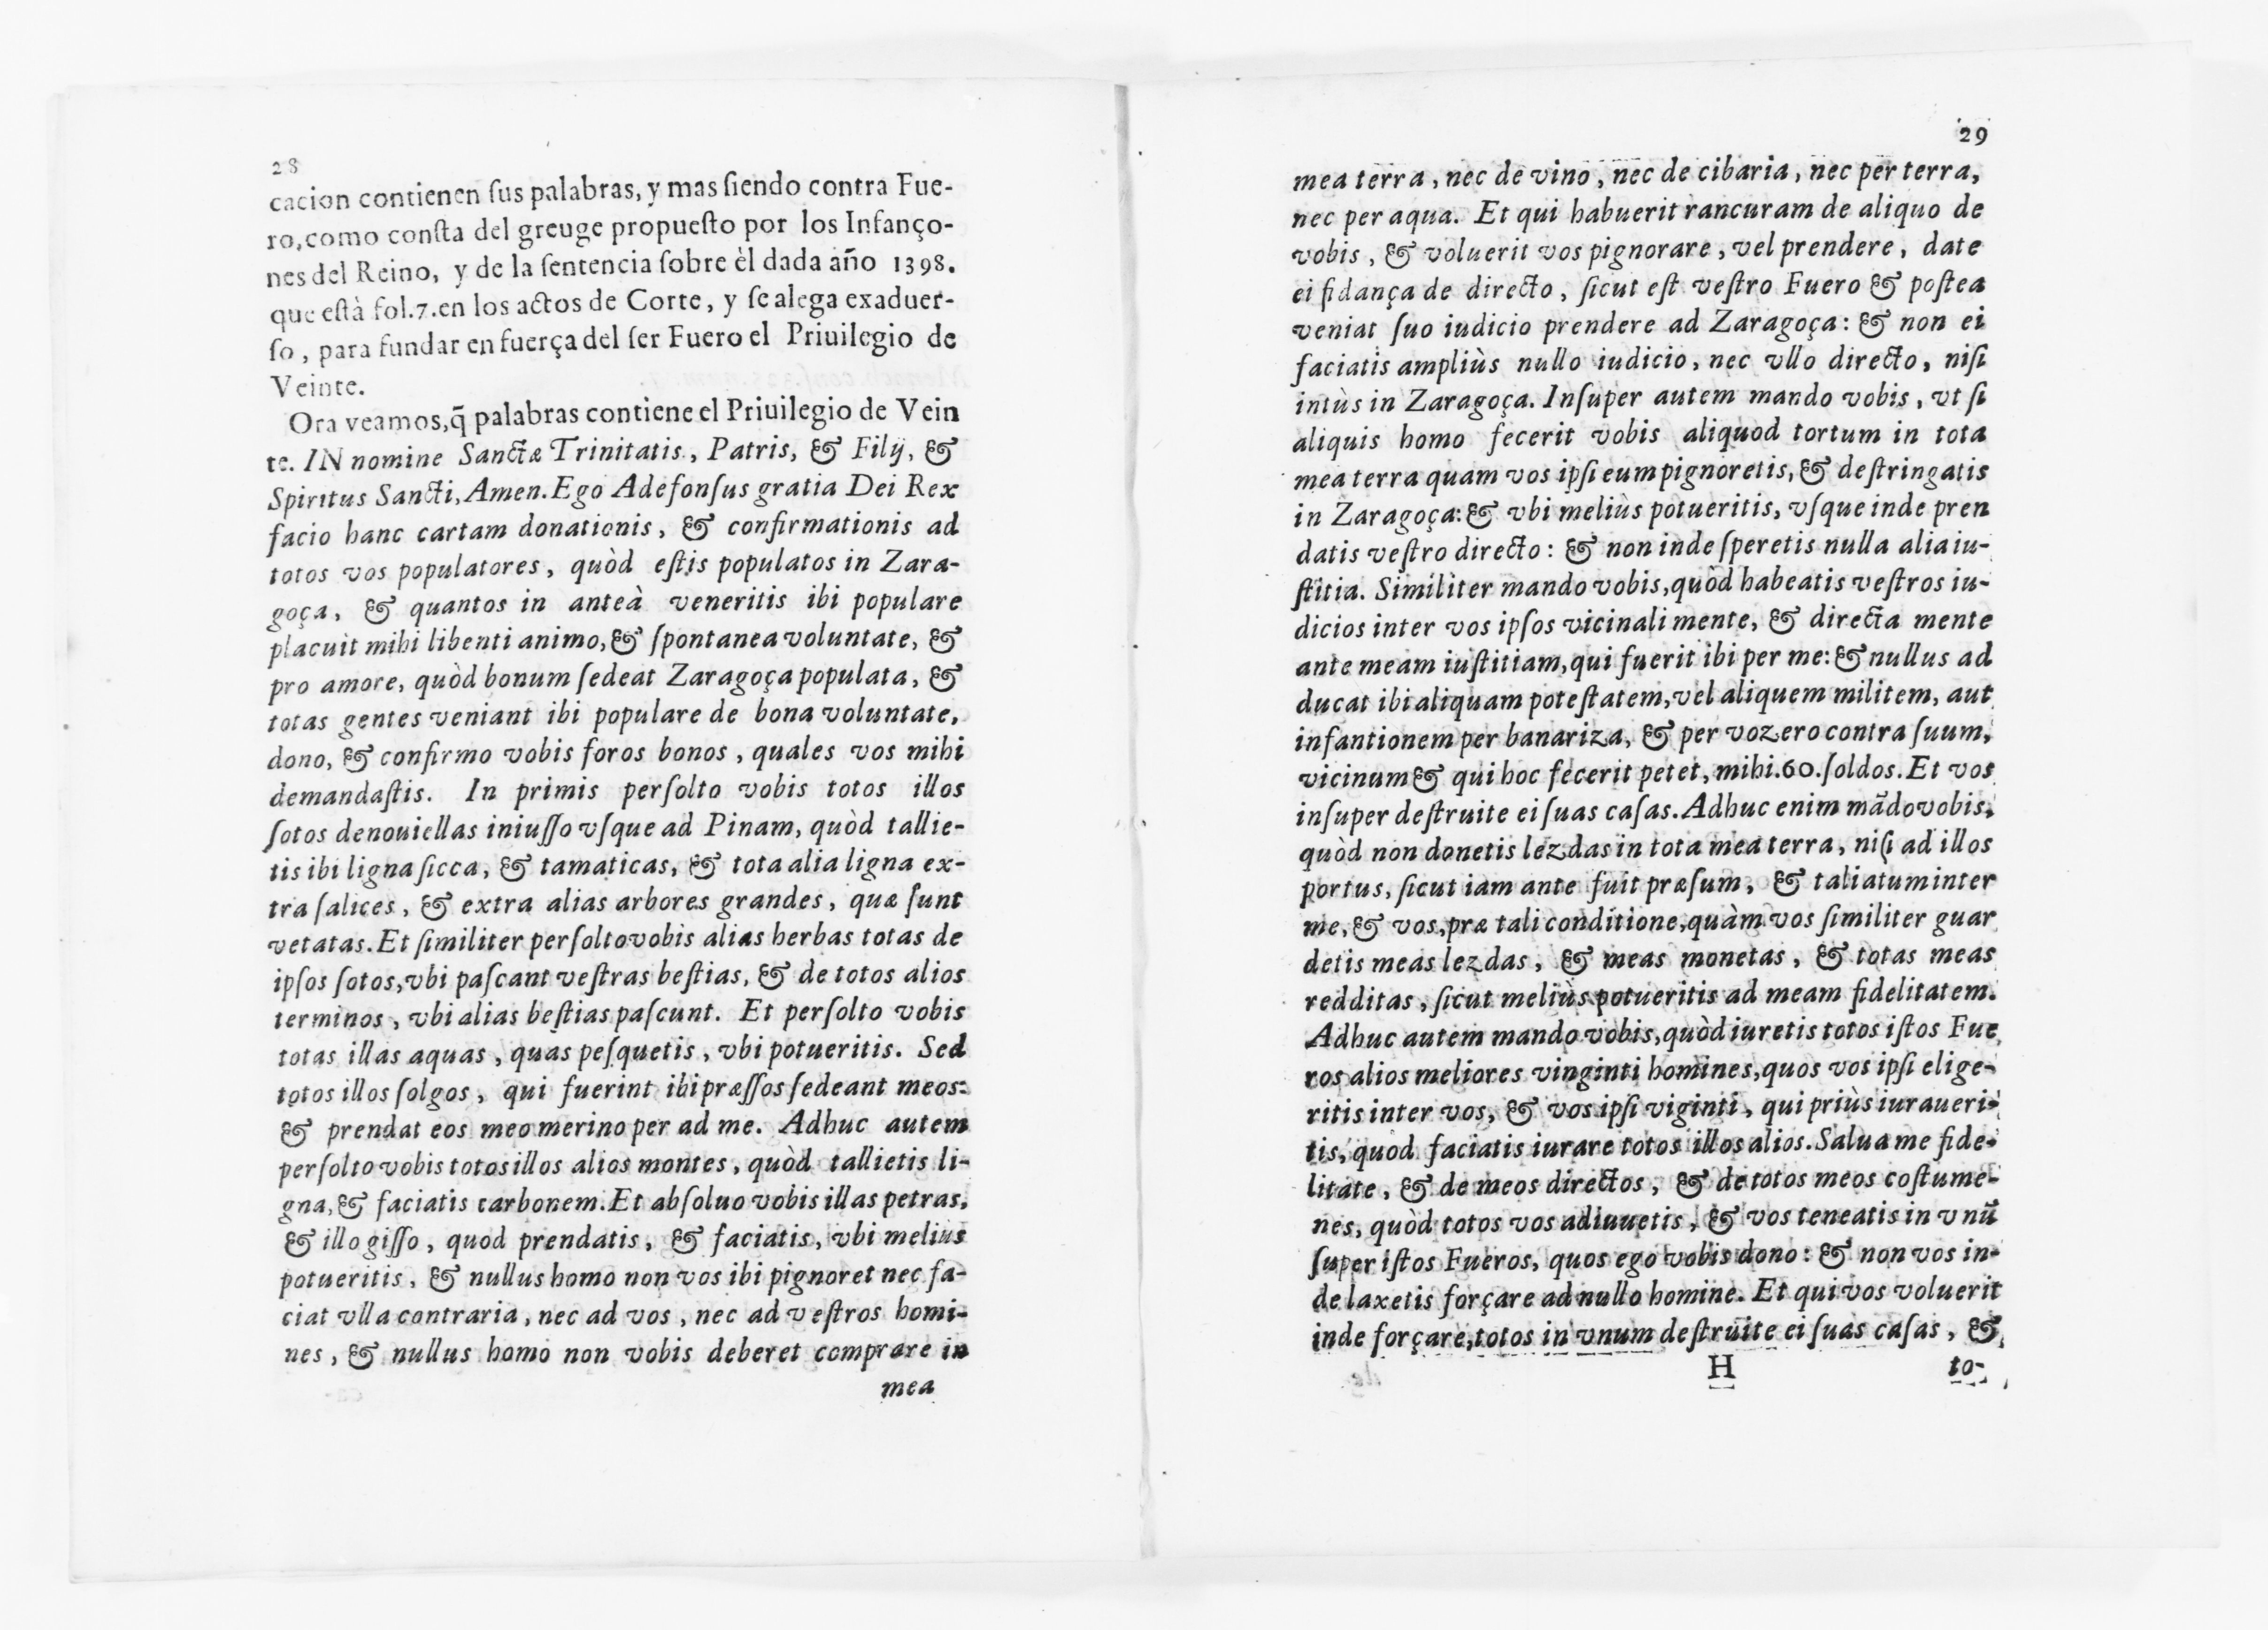 28
cacion contienen ſus palabras, y mas ſiendo contra Fue-
ro, como conſta del greuge propueſto por los Infanço-
nes del Reino, y de la ſentencia ſobre èl dada año 1398.
que eſtà fol.7. en los actos de Corte, y ſe alega exaduer-
ſo, para fundar en fuerça del ſer Fuero el Priuilegio de
Veinte.
Ora veamos, q̃ palabras contiene el Priuilegio de Vein
te. IN nomine Sanctæ Trinitatis, Patris, & Filij, &
Spiritus Sancti, Amen. Ego Adefonſus gratia Dei Rex
facio hanc cartam donationis, & confirmationis ad
totos vos populatores, quòd eſtis populatos in Zara-
goça, & quantos in anteà veneritis ibi populare
placuit mihi libenti animo, & ſpontanea voluntate, &
pro amore, quòd bonum ſedeat Zaragoça populata, &
totas gentes veniant ibi populare de bona voluntate,
dono, & confirmo vobis foros bonos, quales vos mihi
demandaſtis. In primis perſolto vobis totos illos
ſotos denouiellas iniuſſo vſque ad Pinam, quòd tallie-
tis ibi ligna ſicca, & tamaticas, & tota alia ligna ex-
tra ſalices, & extra alias arbores grandes, quæ ſunt
vetatas. Et ſimiliter perſolto vobis alias herbas totas de
ipſos ſotos, vbi paſcant veſtras beſtias, & de totos alios
terminos, vbi alias beſtias paſcunt. Et perſolto vobis
totas illas aquas, quas peſquetis, vbi potueritis. Sed
totos illos ſolgos, qui fuerint ibi præſſos ſedeant meos:
& prendat eos meo merino per ad me. Adhuc autem
perſolto vobis totos illos alios montes, quòd tallietis li-
gna, & faciatis carbonem. Et abſoluo vobis illas petras,
& illo giſſo, quod prendatis, & faciatis, vbi melius
potueritis, & nullus homo non vos ibi pignoret nec fa-
ciat vlla contraria, nec ad vos, nec ad veſtros homi-
nes, & nullus homo non vobis deberet comprare in
mea
29
mea terra, nec de vino, nec de cibaria, nec per terra,
nec per aqua. Et qui habuerit rancuram de aliquo de
vobis, & voluerit vos pignorare, vel prendere, date
ei fidança de directo, ſicut eſt veſtro Fuero & poſtea
veniat ſuo iudicio prendere ad Zaragoça: & non ei
faciatis ampliùs nullo iudicio, nec vllo directo, niſi
intùs in Zaragoça. Inſuper autem mando vobis, vt ſi
aliquis homo fecerit vobis aliquod tortum in tota
mea terra quam vos ipſi eum pignoretis, & deſtringatis
in Zaragoça: & vbi meliùs potueritis, vſque inde pren
datis veſtro directo: & non inde ſperetis nulla alia iu-
ſtitia. Similiter mando vobis, quòd habeatis veſtros iu-
dicios inter vos ipſos vicinali mente, & directa mente
ante meam iuſtitiam, qui fuerit ibi per me: & nullus ad
ducat ibi aliquam poteſtatem, vel aliquem militem, aut
infantionem per banariza, & per vozero contra ſuum,
vicinum & qui hoc fecerit petet, mihi.60.ſoldos. Et vos
inſuper deſtruite ei ſuas caſas. Adhuc enim mãdo vobis,
quòd non donetis lezdas in tota mea terra, niſi ad illos
portus, ſicut iam ante fuit præſum, & taliatum inter
me, & vos, præ tali conditione, quàm vos ſimiliter guar
detis meas lezdas, & meas monetas, & totas meas
redditas, ſicut meliùs potueritis ad meam fidelitatem.
Adhuc autem mando vobis, quòd iuretis totos iſtos Fue
ros alios meliores vinginti homines, quos vos ipſi elige-
ritis inter vos, & vos ipſi viginti, qui priùs iuraueri-
tis, quòd faciatis iurare totos illos alios. Salua me fide-
litate, & de meos directos, & de totos meos coſtume-
nes, quòd totos vos adiuuetis, & vos teneatis in vnũ
ſuper iſtos Fueros, quos ego vobis dono: & non vos in-
de laxetis forçare ad nullo homine. Et qui vos voluerit
inde forçare, totos in vnum deſtruite ei ſuas caſas, &
H to-